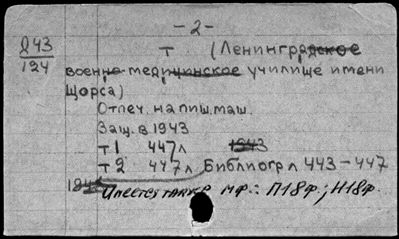 - 2 -
243
124
т (Ленинградское
военно-медицинское училище имени
Щорса)
Отпеч. на пиш. маш.
Защ. в 1943
т 1 447 л 1943
т 2 447 л Библиогр л 443-447
Имеется также мф.: П18ф; Н18ф.